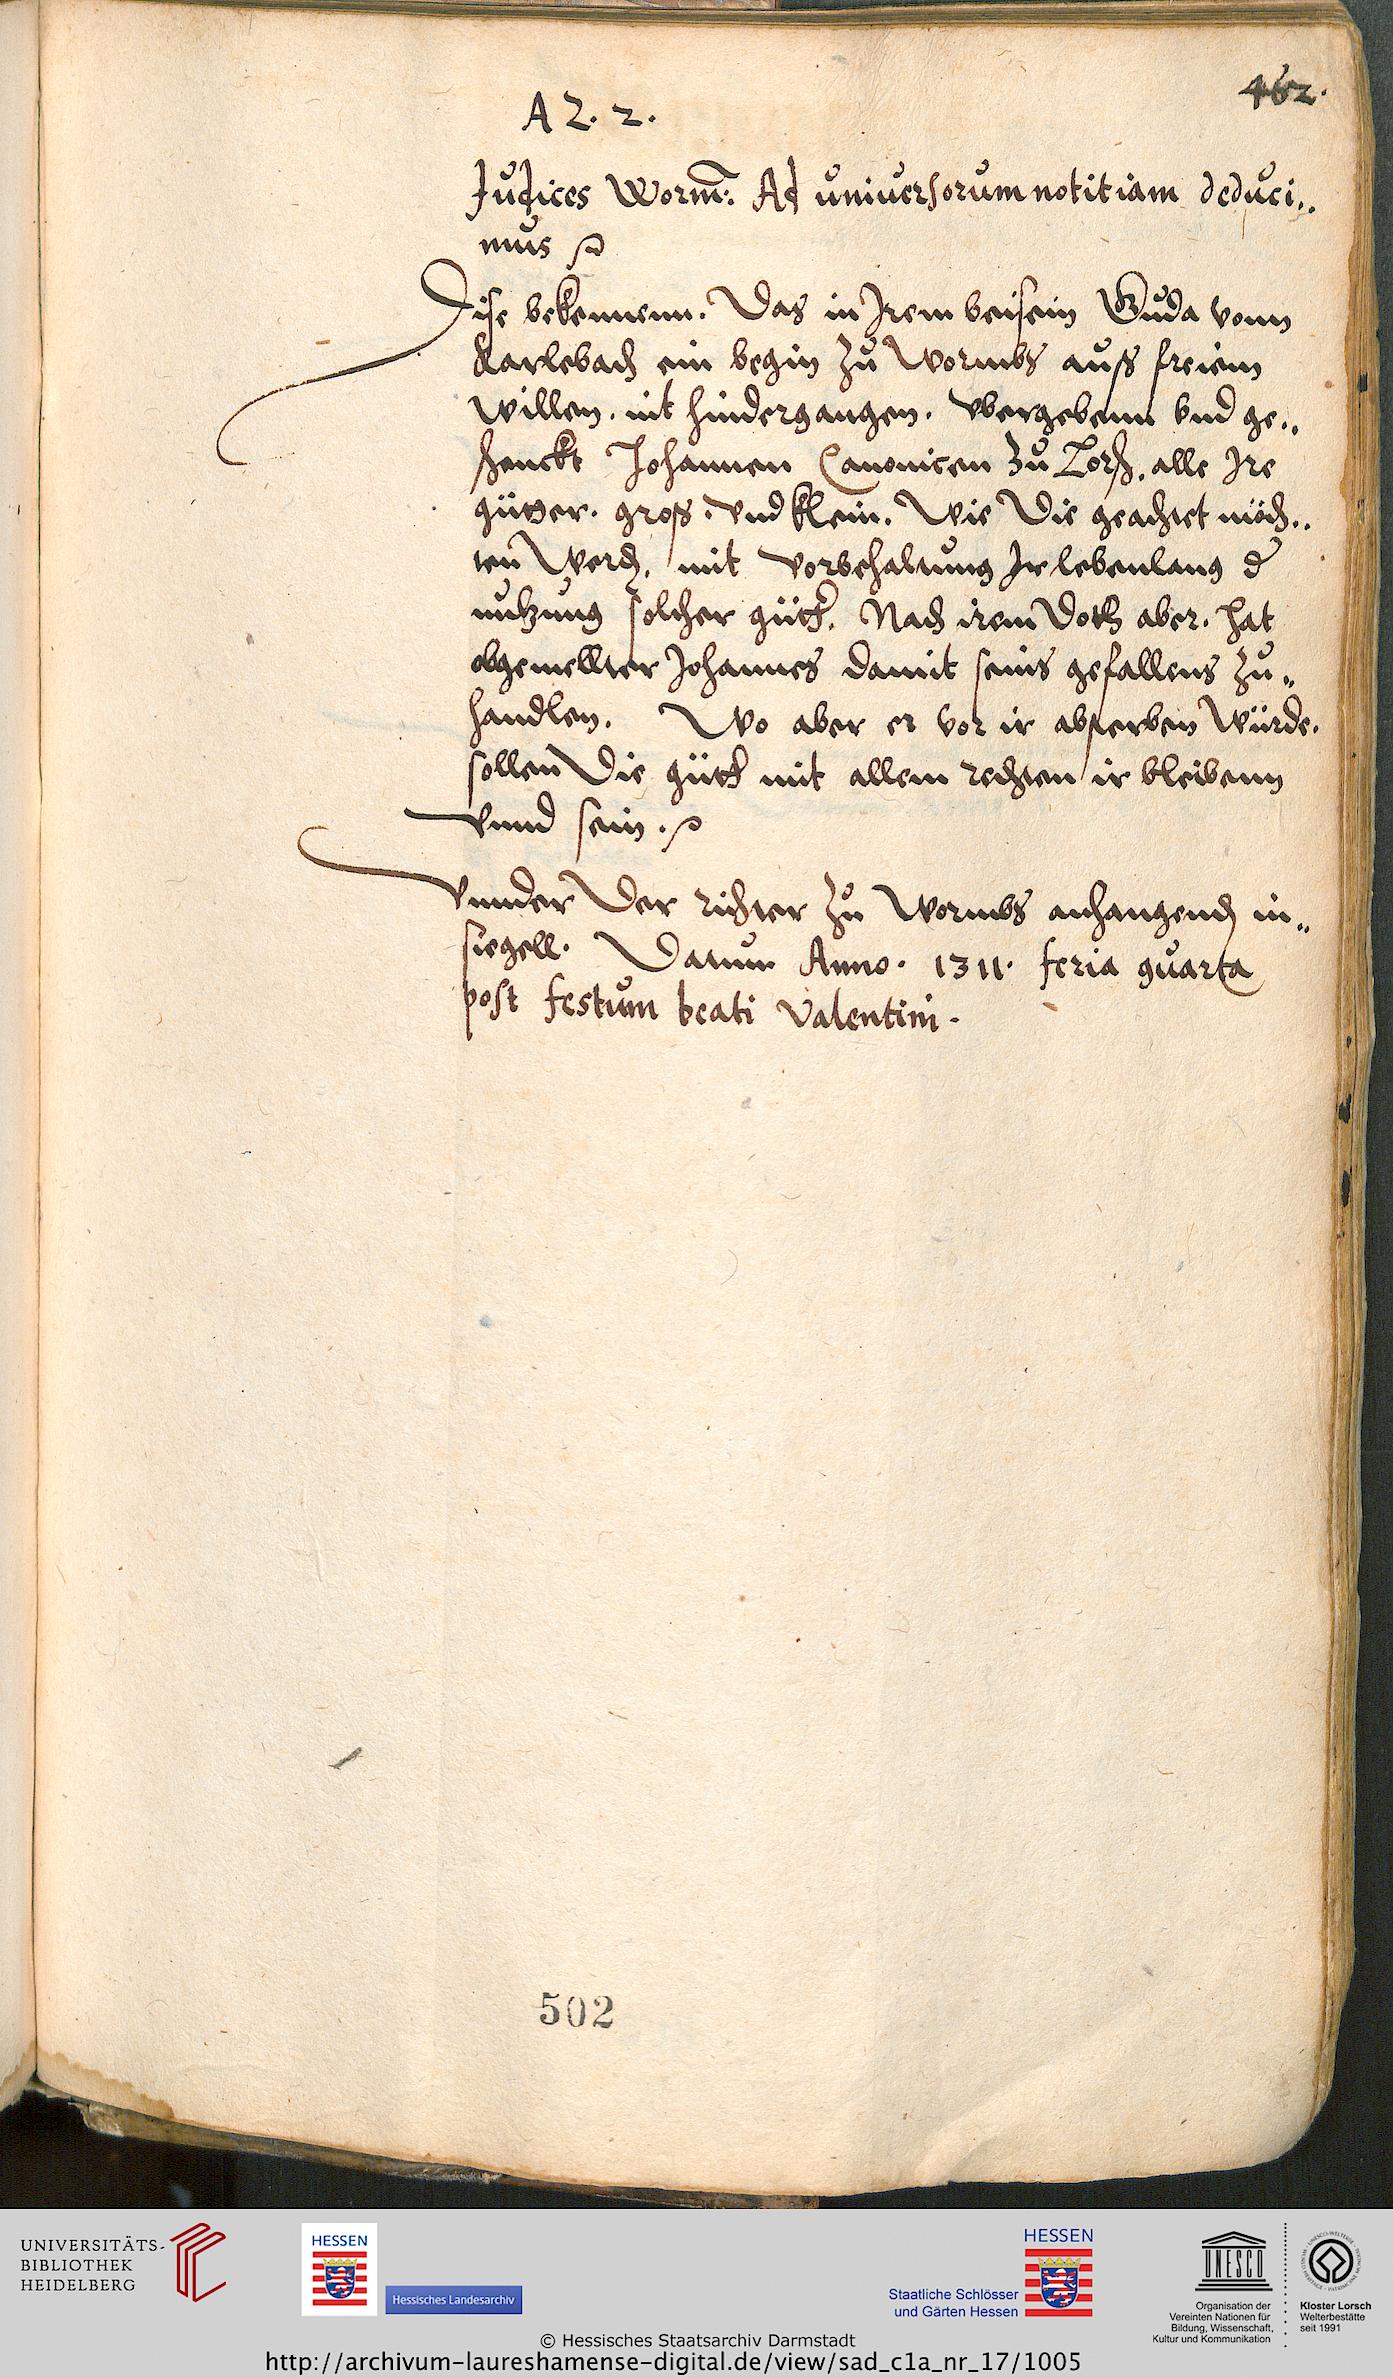 462.
A Z. 2.
Judices Worm: Ad universorum notitiam deduci..
mus
Dise bekennenn. Das in Irem beisein Guda vonn
Karlebach ein begin zů Wormbs auß freiem
willen. nit hindergangen. vbergebenn vnd ge..
schenckt Johannen Canonicen zů Lorsch. alle Ire
gütter. groß. vnd klein. Wie Die geachtet möch..
ten Werd. mit vorbehaltung Ir lebenlang d
nutzung solcher gütt. Nach irem Doth aber. hat
obgemellter Johannes damit seins gefallens zů..
handlen. Wo aber er vor ir absterben Würde.
sollen Die gütt mit allem rechten ir bleibenn
vnnd sein.
Vnnder Der richter zů Wormbs anhangend in..
siegell. Datum Anno. 1311. feria quarta
post festum beati Valentini.
502
UNIVERSITÄTS-
BIBLIOTHEK
HEIDELBERG
HESSEN
Hessisches Landesarchiv
HESSEN
Staatliche Schlösser
und Gärten Hessen
UNESCO
Organisation der
Vereinten Nationen für
Bildung, Wissenschaft,
Kultur und Kommunikation
Kloster Lorsch
Welterbestätte
seit 1991
© Hessisches Staatsarchiv Darmstadt
http://archivum-laureshamense-digital.de/view/sad_c1a_nr_17/1005